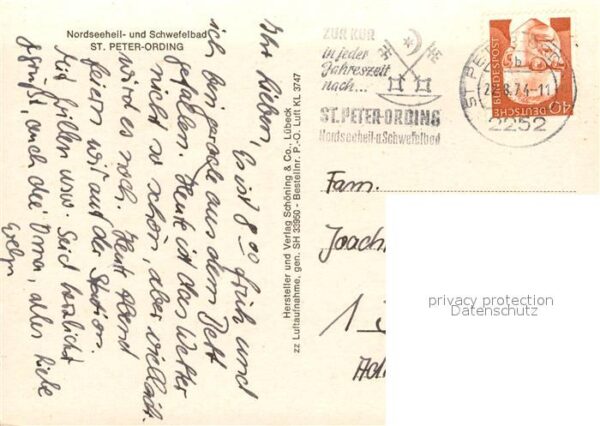 Nordseeheil- und Schwefelbad
ST. PETER-ORDING
Ihr Lieben,
Es ist 8 00 früh und
ich bin gerade aus dem Bett
gefallen. Heute ist das Wetter
nicht so schön, aber vielleicht
wird es noch. Heute Abend
feiern wir auf der Station.
Mit Grillen usw. Seid herzlichst
gegrüßt, auch die Oma, alles Liebe
Evelyn
Hersteller und Verlag Schöning & Co., Lübeck
zz Luftaufnahme, gen. SH 33950 - Bestellnr. P.-O. Luft KL 3747
ZUR KUR
in jeder
Jahreszeit
nach...
ST.PETER-ORDING
Nordseeheil-u Schwefelbad
ST PET
8.74-11
2252
DEUTSCHE
BUNDESPOST
40
Fam.
Joach
1
privacy protection
Datenschutz